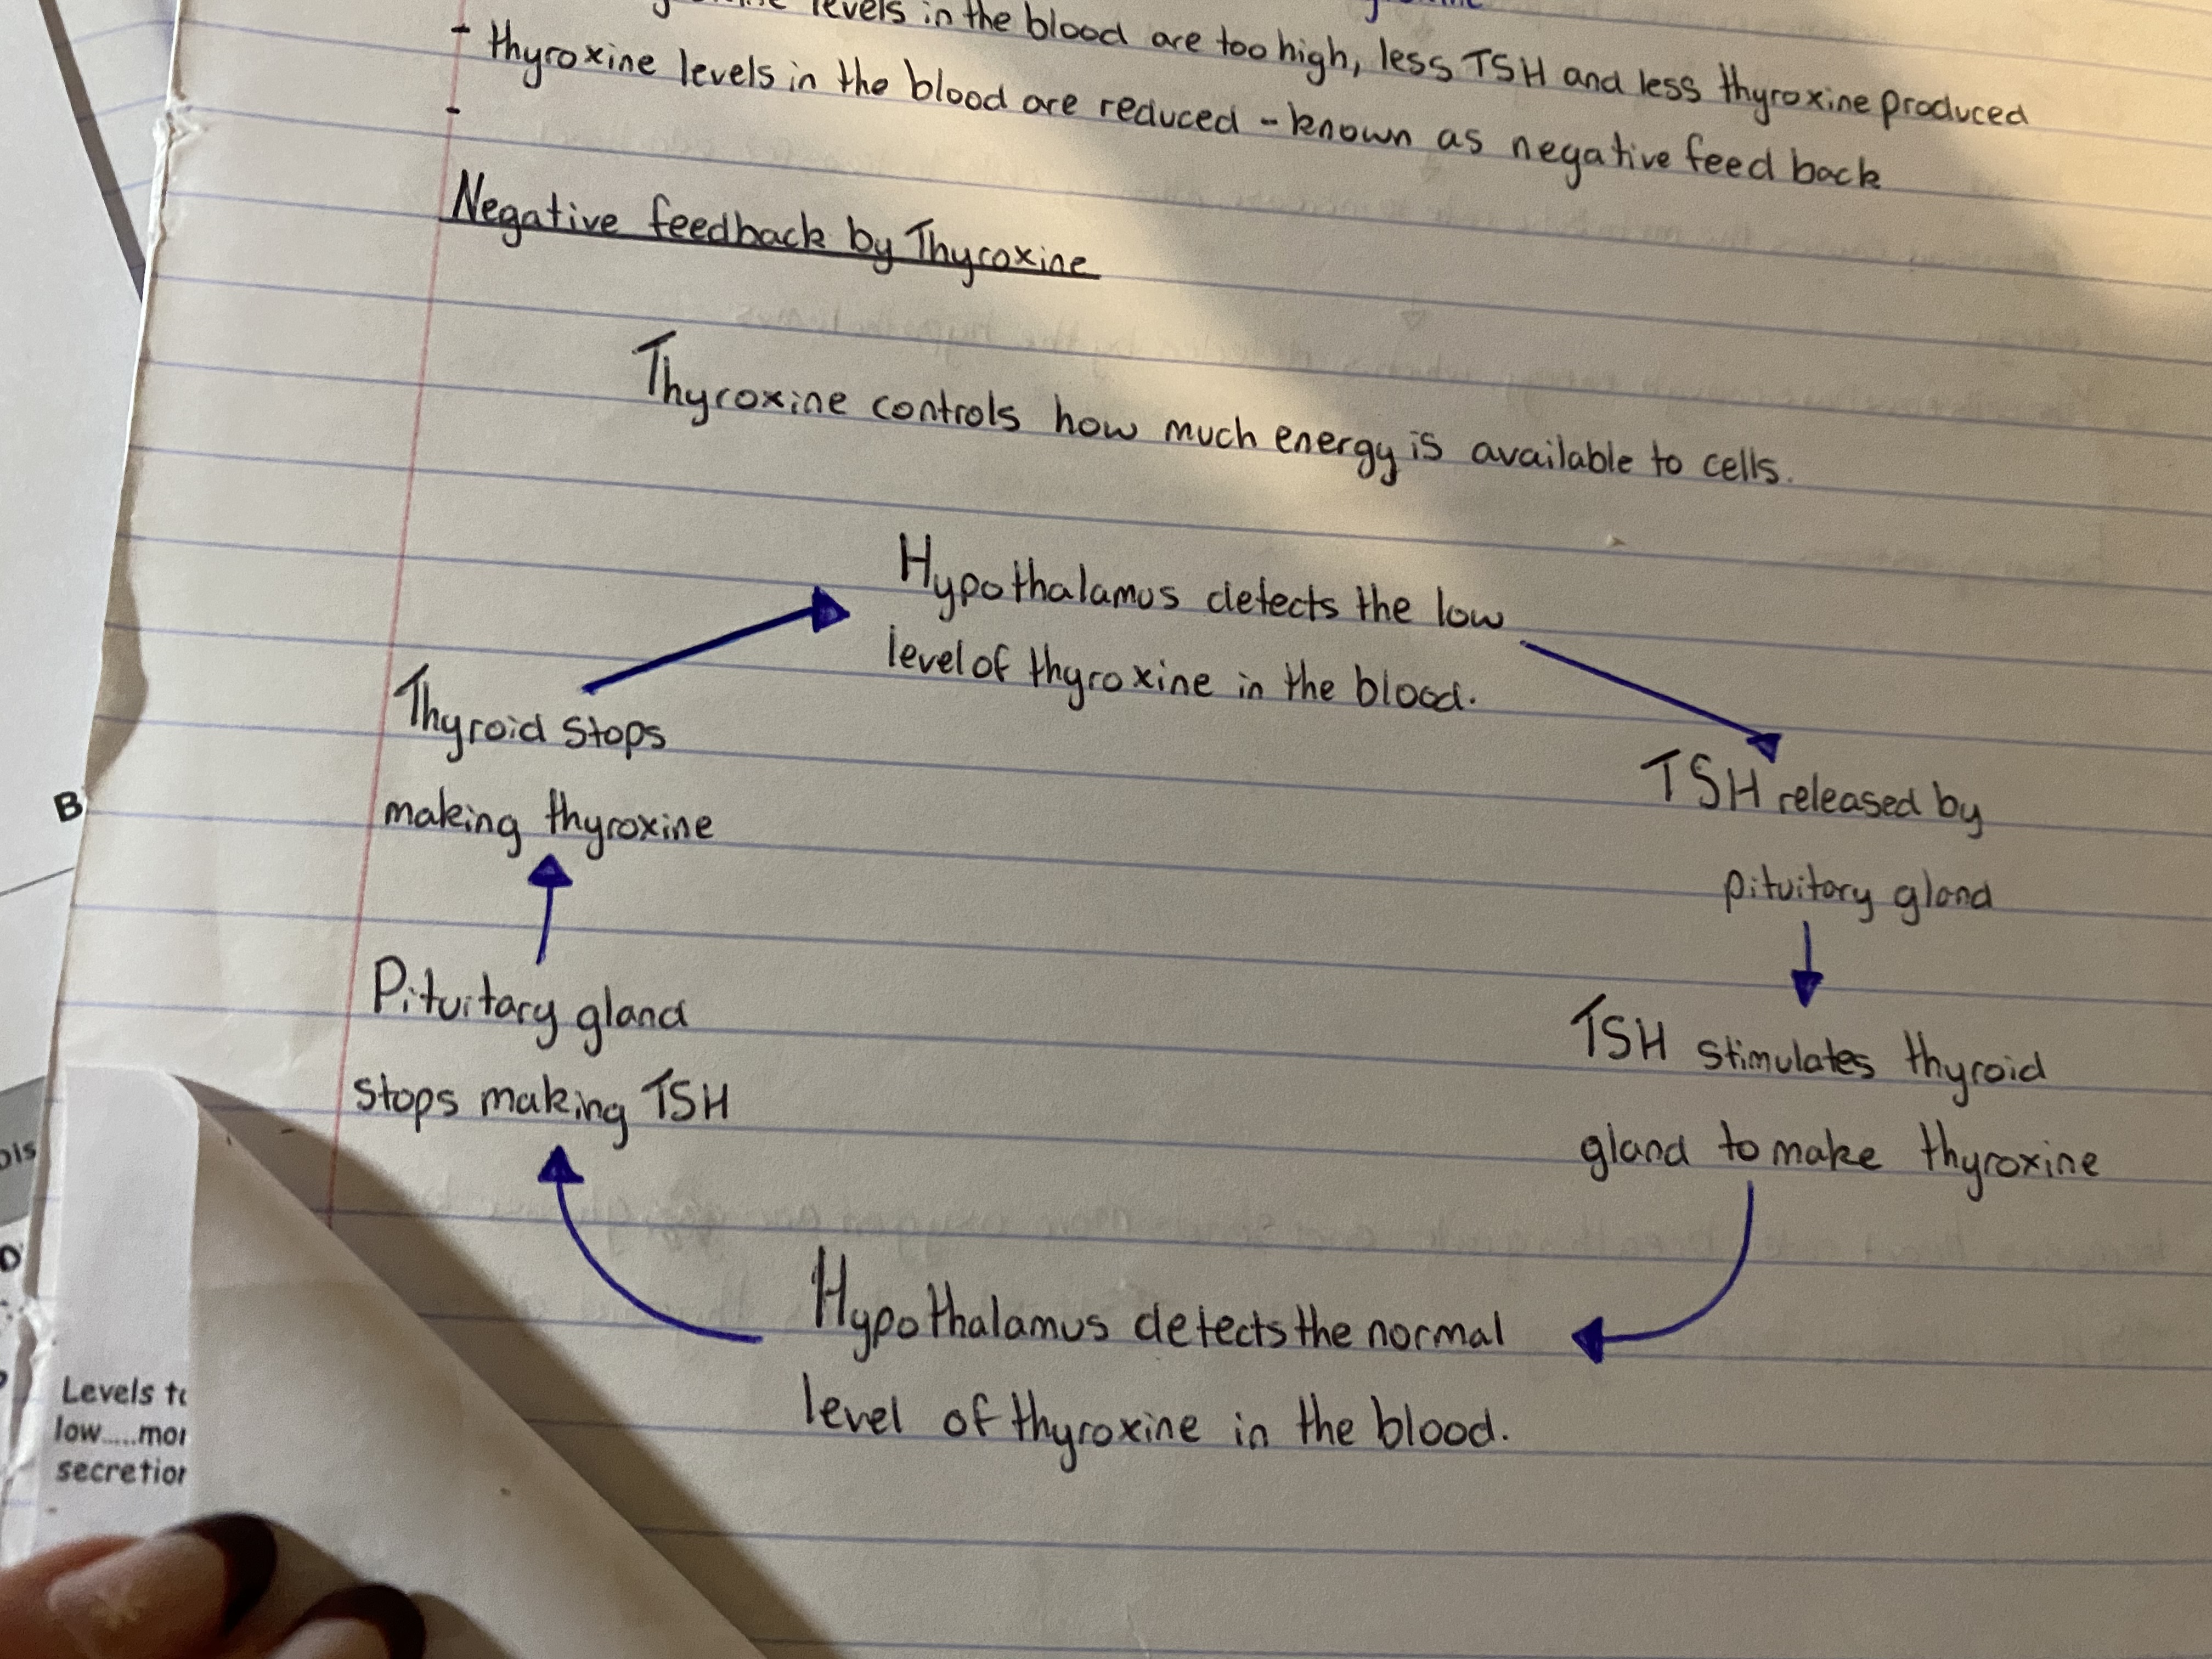 levels in the blood are too high, less TSH and less thyroxine produced
- thyroxine levels in the blood are reduced - known as negative feed back
-
Negative feedback by Thyroxine
Thyroxine controls how much energy is available to cells.
Hypothalamus detects the low
level of thyroxine in the blood.
TSH released by
pituitary gland
TSH stimulates thyroid
gland to make thyroxine
Hypothalamus detects the normal
level of thyroxine in the blood.
Pituitary gland
stops making TSH
Thyroid stops
making thyroxine
B
Levels
low.....